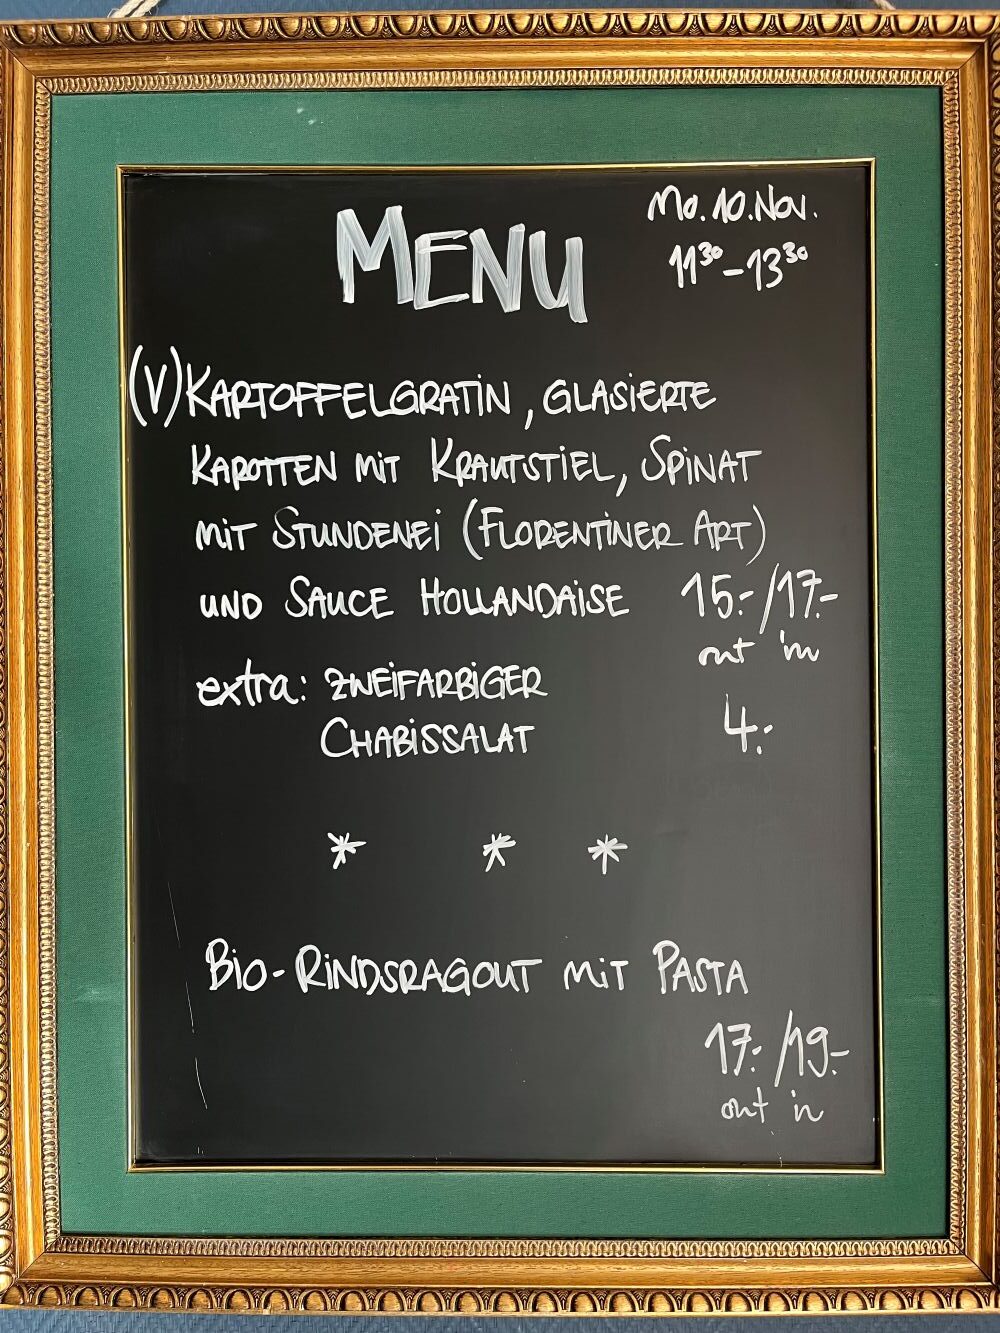 MENU
Mo. 10. Nov.
11³⁰ - 13³⁰
(V) KARTOFFELGRATIN, GLASIERTE
KAROTTEN MIT KRAUTSTIEL, SPINAT
MIT STUNDENEI (FLORENTINER ART)
UND SAUCE HOLLANDAISE 15.-/17.-
out in
extra: ZWEIFARBIGER
CHABISSALAT 4.-
* * *
BIO-RINDSRAGOUT MIT PASTA
17.-/19.-
out in